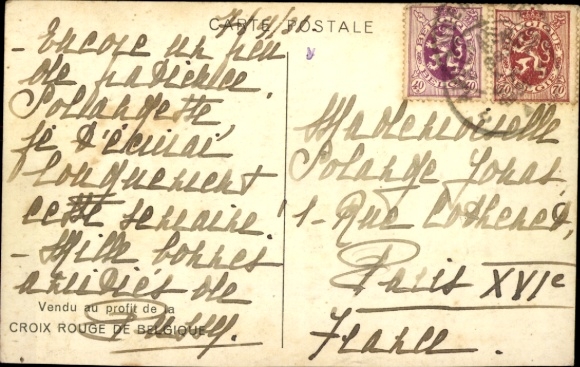 CARTE POSTALE
- Encore un peu
de patience,
Solangette
je t'écrirai
longuement
cette semaine.
- Mille bonnes
amitiés de
Vendu au profit de la
CROIX ROUGE DE BELGIQUE
Mademoiselle
Solange Jonas
1 - Rue Cothenet,
Paris XVIe
France.
40 BELGIE 40
70 70